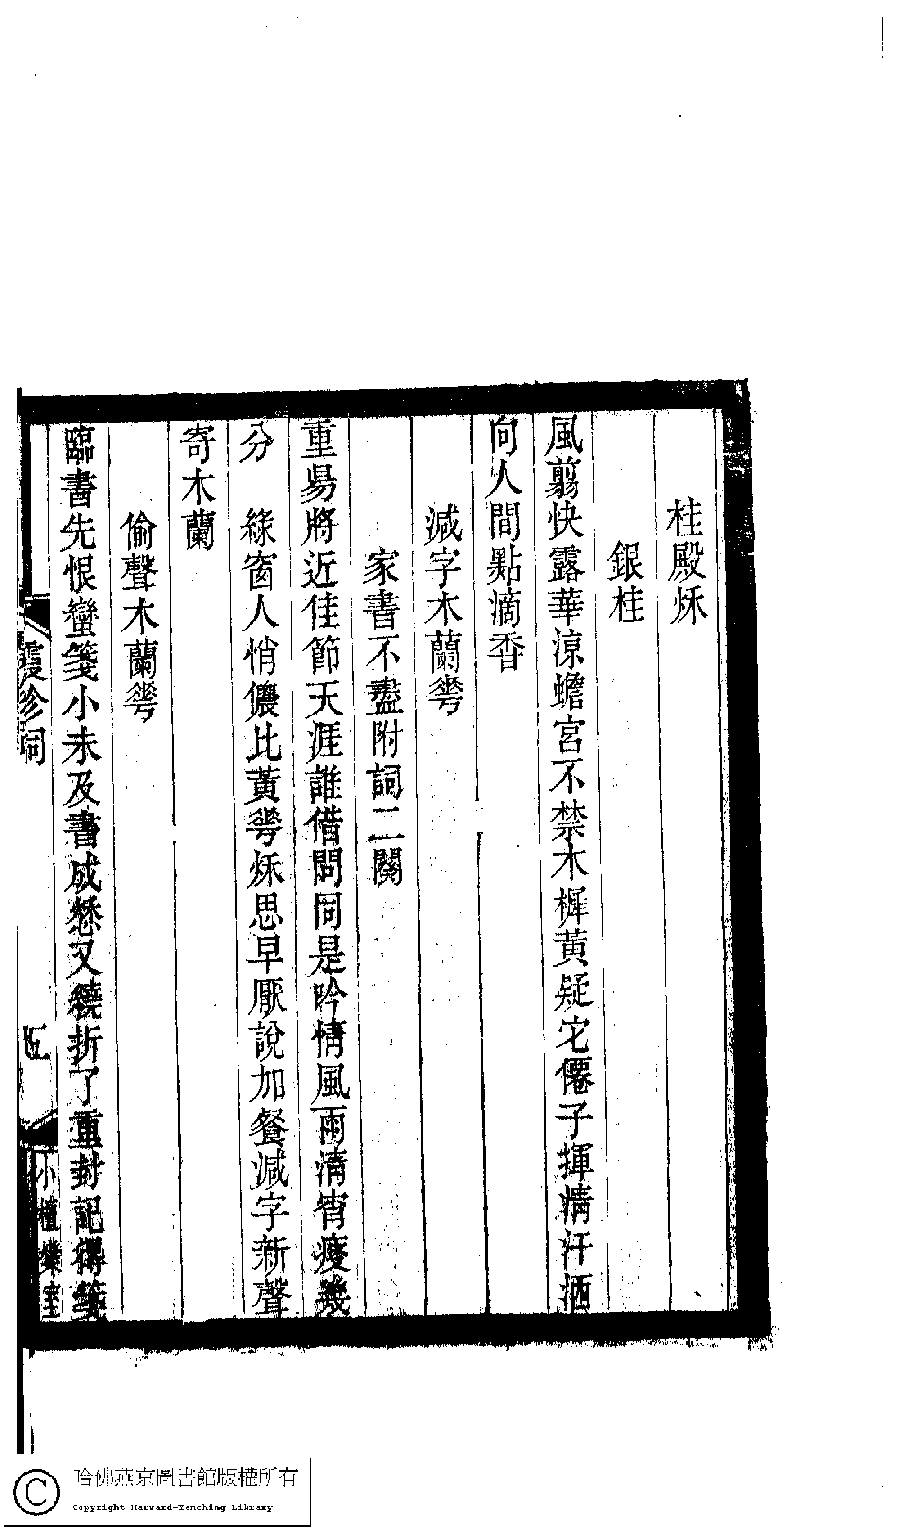 桂殿秌
銀桂
風翦快露華涼蟾宮不禁木樨黃疑它僊子揮情汗洒
向人間點滴香
減字木蘭蕚
家書不盡附詞二闋
重昜將近佳節天涯誰借問同是吟情風雨清宵瘦幾
分　綠窗人悄儂比黃蕚秌思早厭說加餐減字新聲
寄木蘭
偷聲木蘭蕚
臨書先恨蠻箋小未及書成愁又繞折了重封記得箋
霞珍詞
五
小檀欒室
哈佛燕京圖書館版權所有
Copyright Harvard-Yenching Library